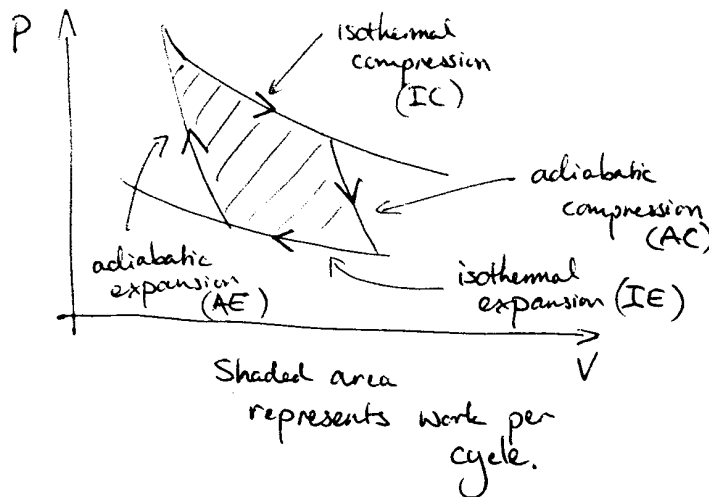 P
isothermal
compression
(IC)
adiabatic
compression
(AC)
adiabatic
expansion
(AE)
isothermal
expansion (IE)
V
Shaded area
represents work per
cycle.